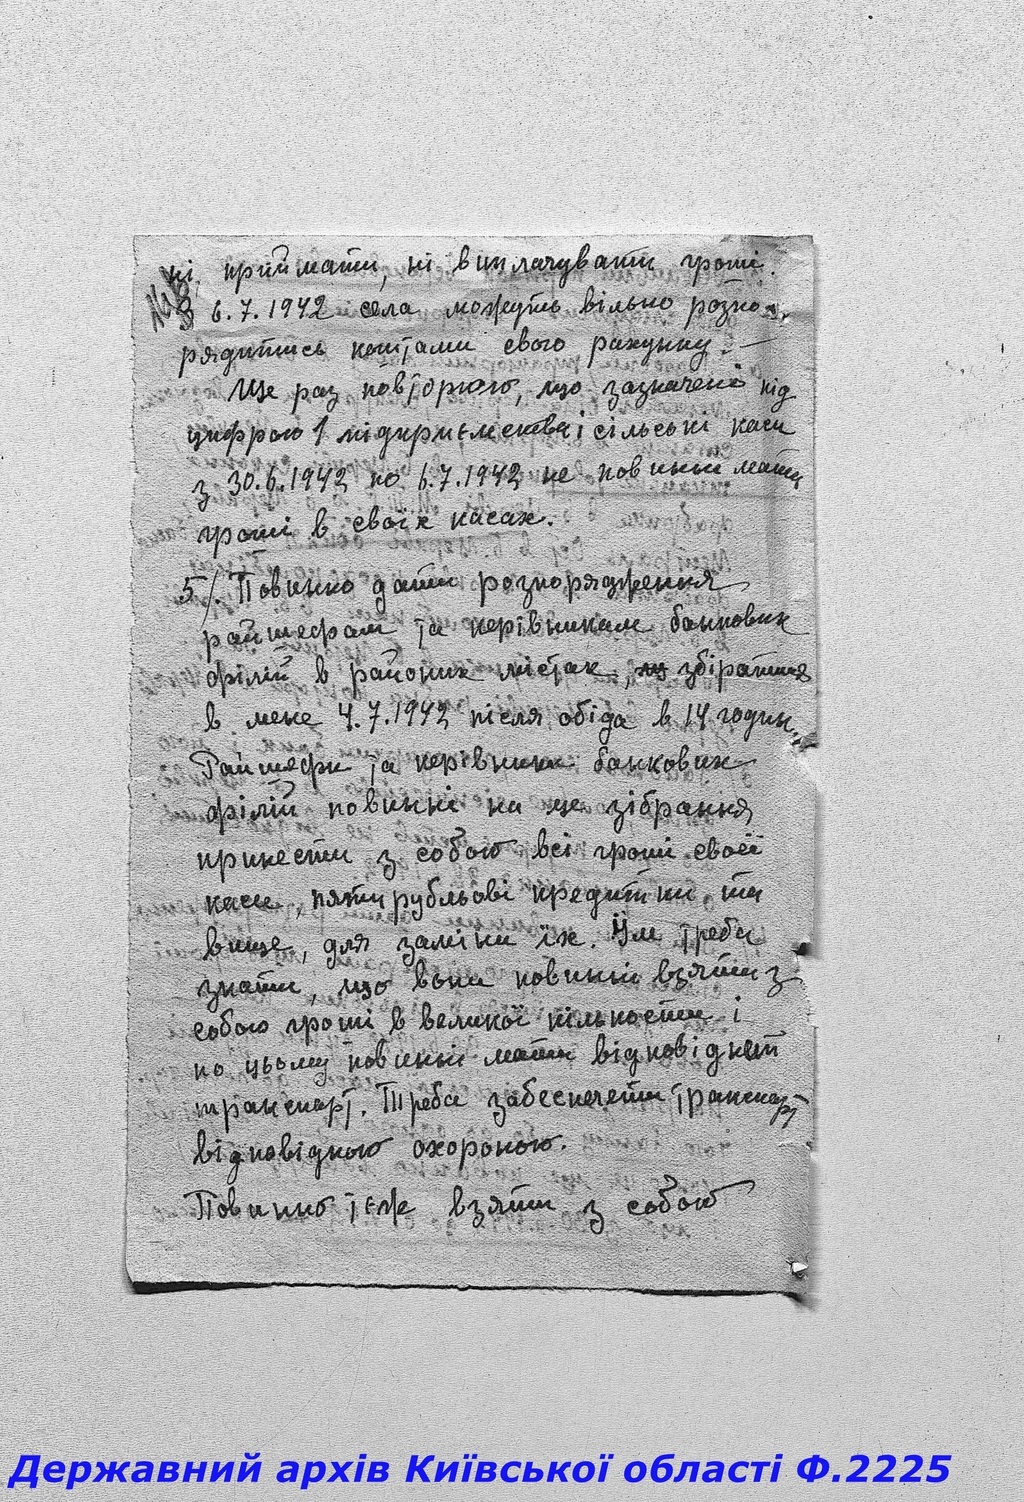 ні приймати, ні виплачувати гроші.
З 6.7.1942 села можуть вільно розпо-
рядитись коштами свого рахунку. —
Ще раз повторюю, що зазначені під
цифрою 1 підприємства і сільські каси
з 30.6.1942 по 6.7.1942 не повинні мати
гроші в своїх касах.
5/. Повинно дати розпорядження
райшефам та керівникам банковик
філій в районих містах, збіратися
в мене 4.7.1942 після обіда в 14 годин.
Райшефи та керівники банковик
філій повинні на це зібрання
принести з собою всі гроші своєї
каси, пятирубльові кредитки та
вище, для заміни їх. Їм треба
знати, що вони повинні взяти з
собою гроші в великої кількости і
по цьому повинні мати відповідний
транспорт. Треба забеспечети транспорт
відповідною охороною.
Повинно теж взяти з собою
Державний архів Київської області Ф.2225